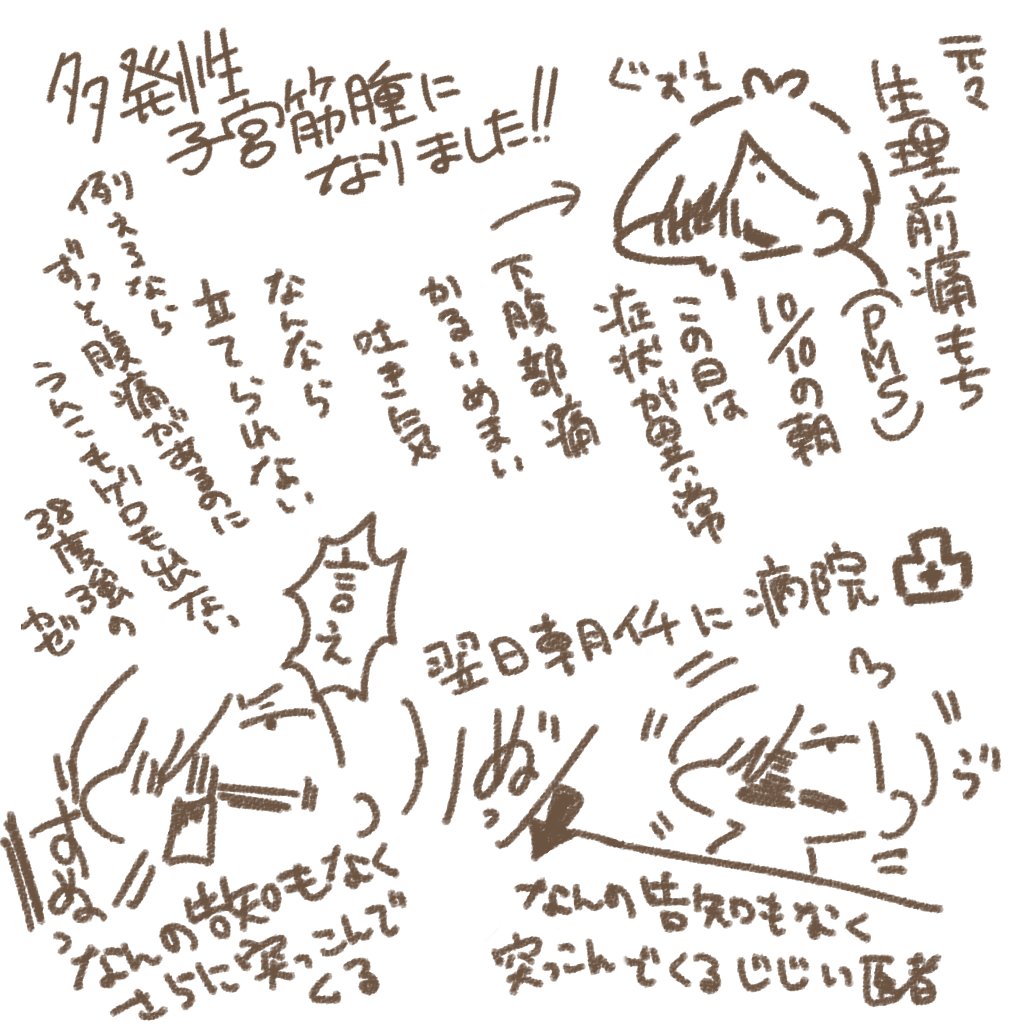 多発性
子宮筋腫に
なりました!!
ぐずえ
元々
生理前痛もち
(PMS)
10/10の朝
この日は
症状が異常
下腹部痛
かるいめまい
吐き気
なんなら
立てられない
例えるなら
ずっと腹痛があるのに
うんこもゲロも出ない
38度強の
カゼ
翌日朝イチに病院
ゔ
ぬ゛っ
なんの告知もなく
突っこんでくるじじい医者
言え
ずぬっ
なんの告知もなく
さらに突っこんで
くる